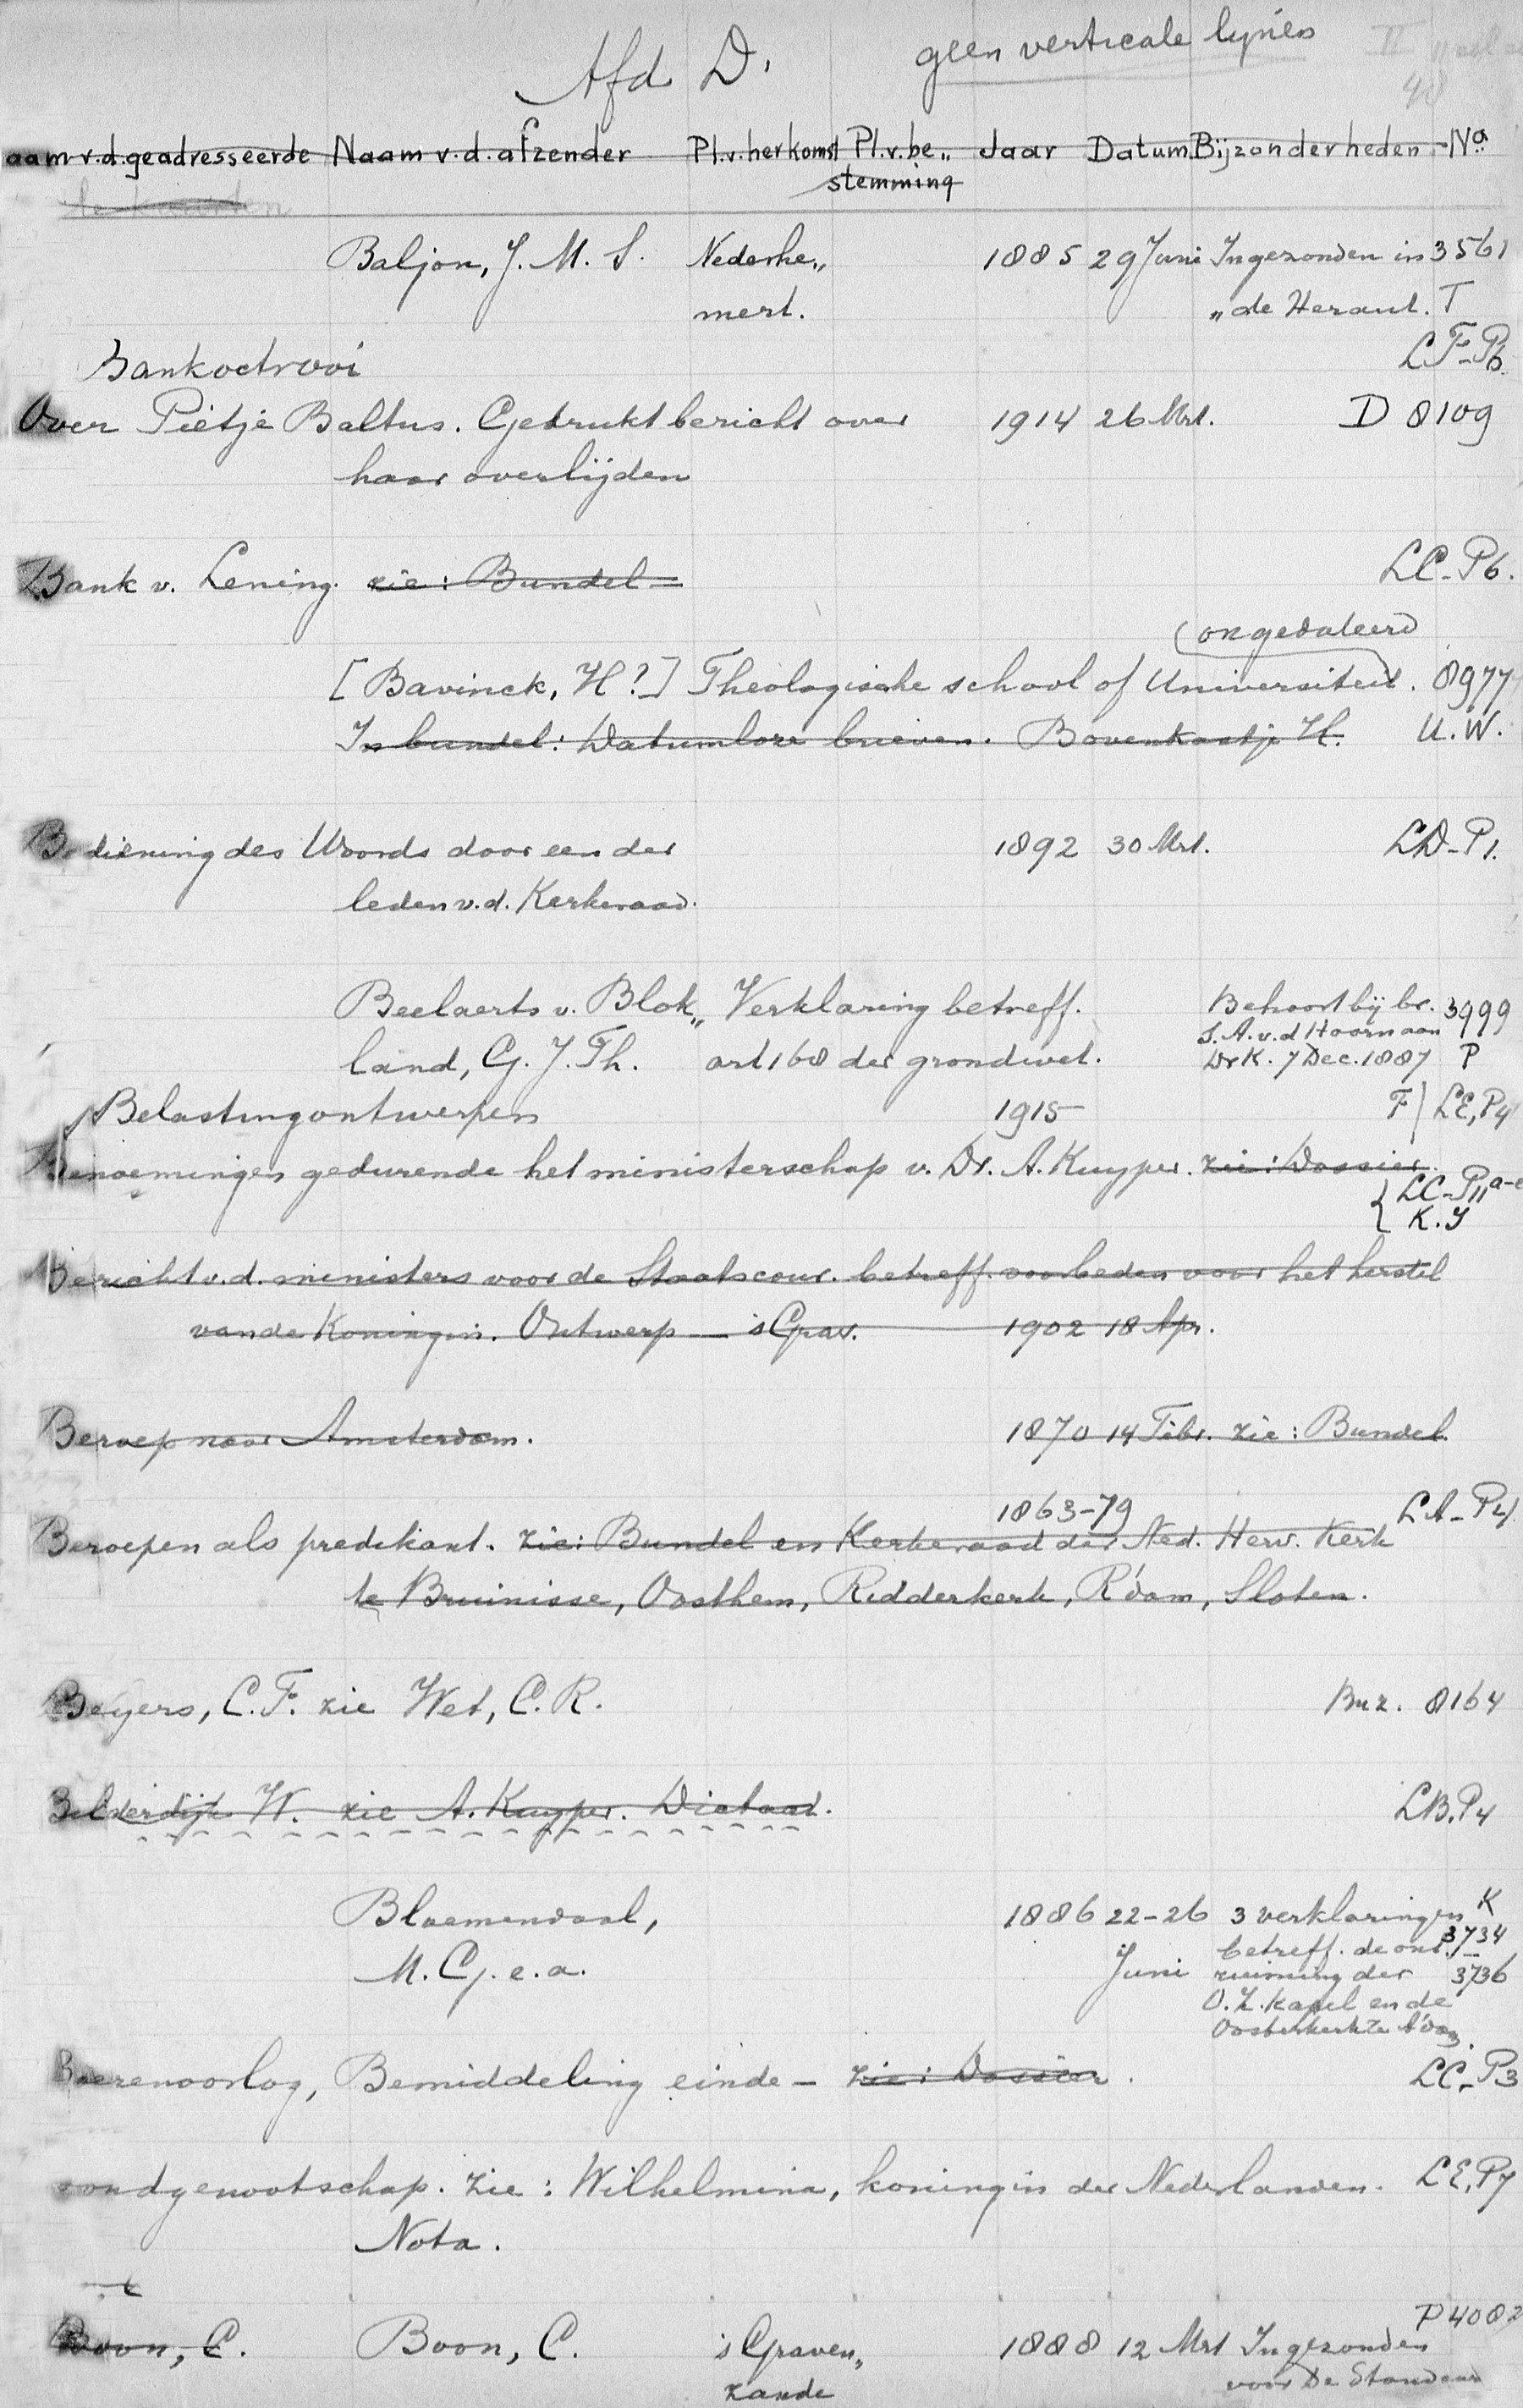 Afd D. geen verticale lynen II
40
aam v.d. geadresseerde Naam v.d. afzender Pl. v. herkomst Pl. v. be„ Jaar Datum Bijzonderheden No.
stemming
Baljon, J. M. S. Nederhe„ 1885 29 Juni Ingezonden in 3561
mert. „de Heraut. T
Bankoctrooi LF-P6.
Over Pietje Baltus. Gedrukt bericht over 1914 26 Mrt. D 8109
haar overlijden
Bank v. Lening. zie: Bundel LC-P6.
(ongedateerd
[Bavinck, H?] Theologische school of Universiteit. 8977
In bundel: Datumloze brieven. Bovenkastje H. U.W.
Bediening des Woords door een der 1892 30 Mrt. LD-P1.
leden v.d. Kerkeraad.
Beelaerts v. Blok„ Verklaring betreff. Behoort bij br. 3999
land, G. J. Th. art 168 der grondwet. S. A. v. d Hoorn aan
Dr K. 7 Dec. 1887 P
Belastingontwerpen 1915 F) LE, P4
Benoemingen gedurende het ministerschap v. Dr. A. Kuyper. zie: Dossier
{ LC-P11 a-e
K. Y
Bericht v.d. ministers voor de Staatscour. betreff. voorbeden voor het herstel
van de Koningin. Ontwerp — 's Grav. 1902 18 Apr.
Beroep naar Amsterdam. 1870 14 Febr. zie: Bundel.
1863-79 LA-P4
Beroepen als predikant. zie: Bundel en Kerkeraad der Ned. Herv. Kerk
te Bruinisse, Oosthem, Ridderkerk, R'dam, Sloten.
Beyers, C. F. zie Wet, C. R. Buz. 8164
Bilderdijk W. zie A. Kuyper. Dictaat. LB.P4
Bloemendaal, 1886 22-26 3 verklaringen K
M. G. e.a. Juni betreff. de ont„ 3734
ruiming der 3736
O. Z. kapel en de
Oosterkerk te A'dam.
Boerenoorlog, Bemiddeling einde — zie: Dossier. LC-P3
ondgenootschap. zie: Wilhelmina, koningin der Nederlanden. LE, P7
Nota.
P 4082
Boon, C. Boon, C. 's Graven„ 1888 12 Mrt Ingezonden
zande voor De Standaard